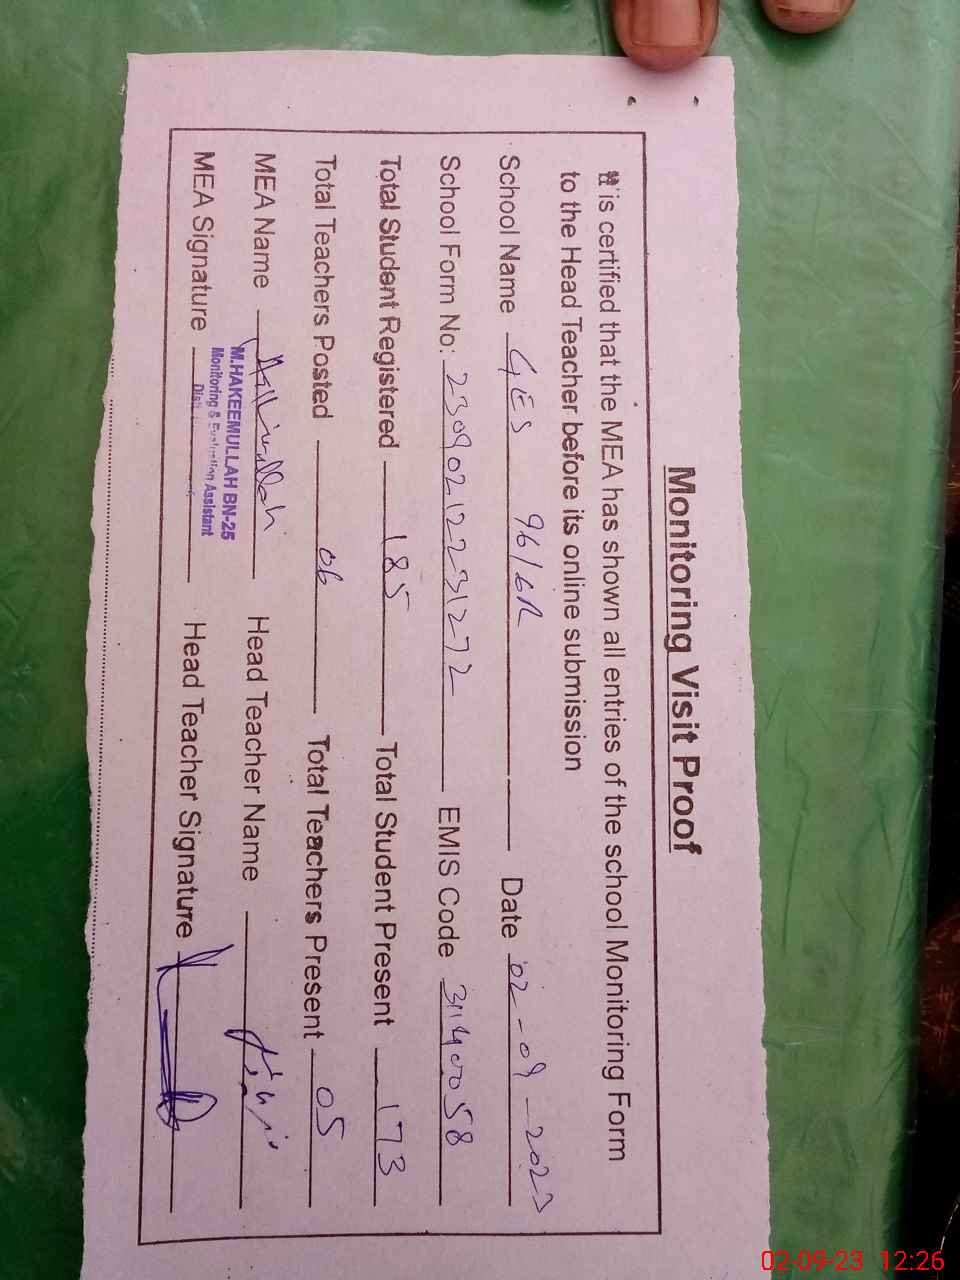 Monitoring Visit Proof
It is certified that the MEA has shown all entries of the school Monitoring Form
to the Head Teacher before its online submission
School Name GES 96/6R Date 02-09-2023
School Form No: 23090212231272 EMIS Code 31140058
Total Student Registered 185 Total Student Present 173
Total Teachers Posted 06 Total Teachers Present 05
MEA Name Head Teacher Name
MEA Signature Head Teacher Signature
M.HAKEEMULLAH BN-25
Monitoring & Evaluation Assistant
02-09-23 12:26